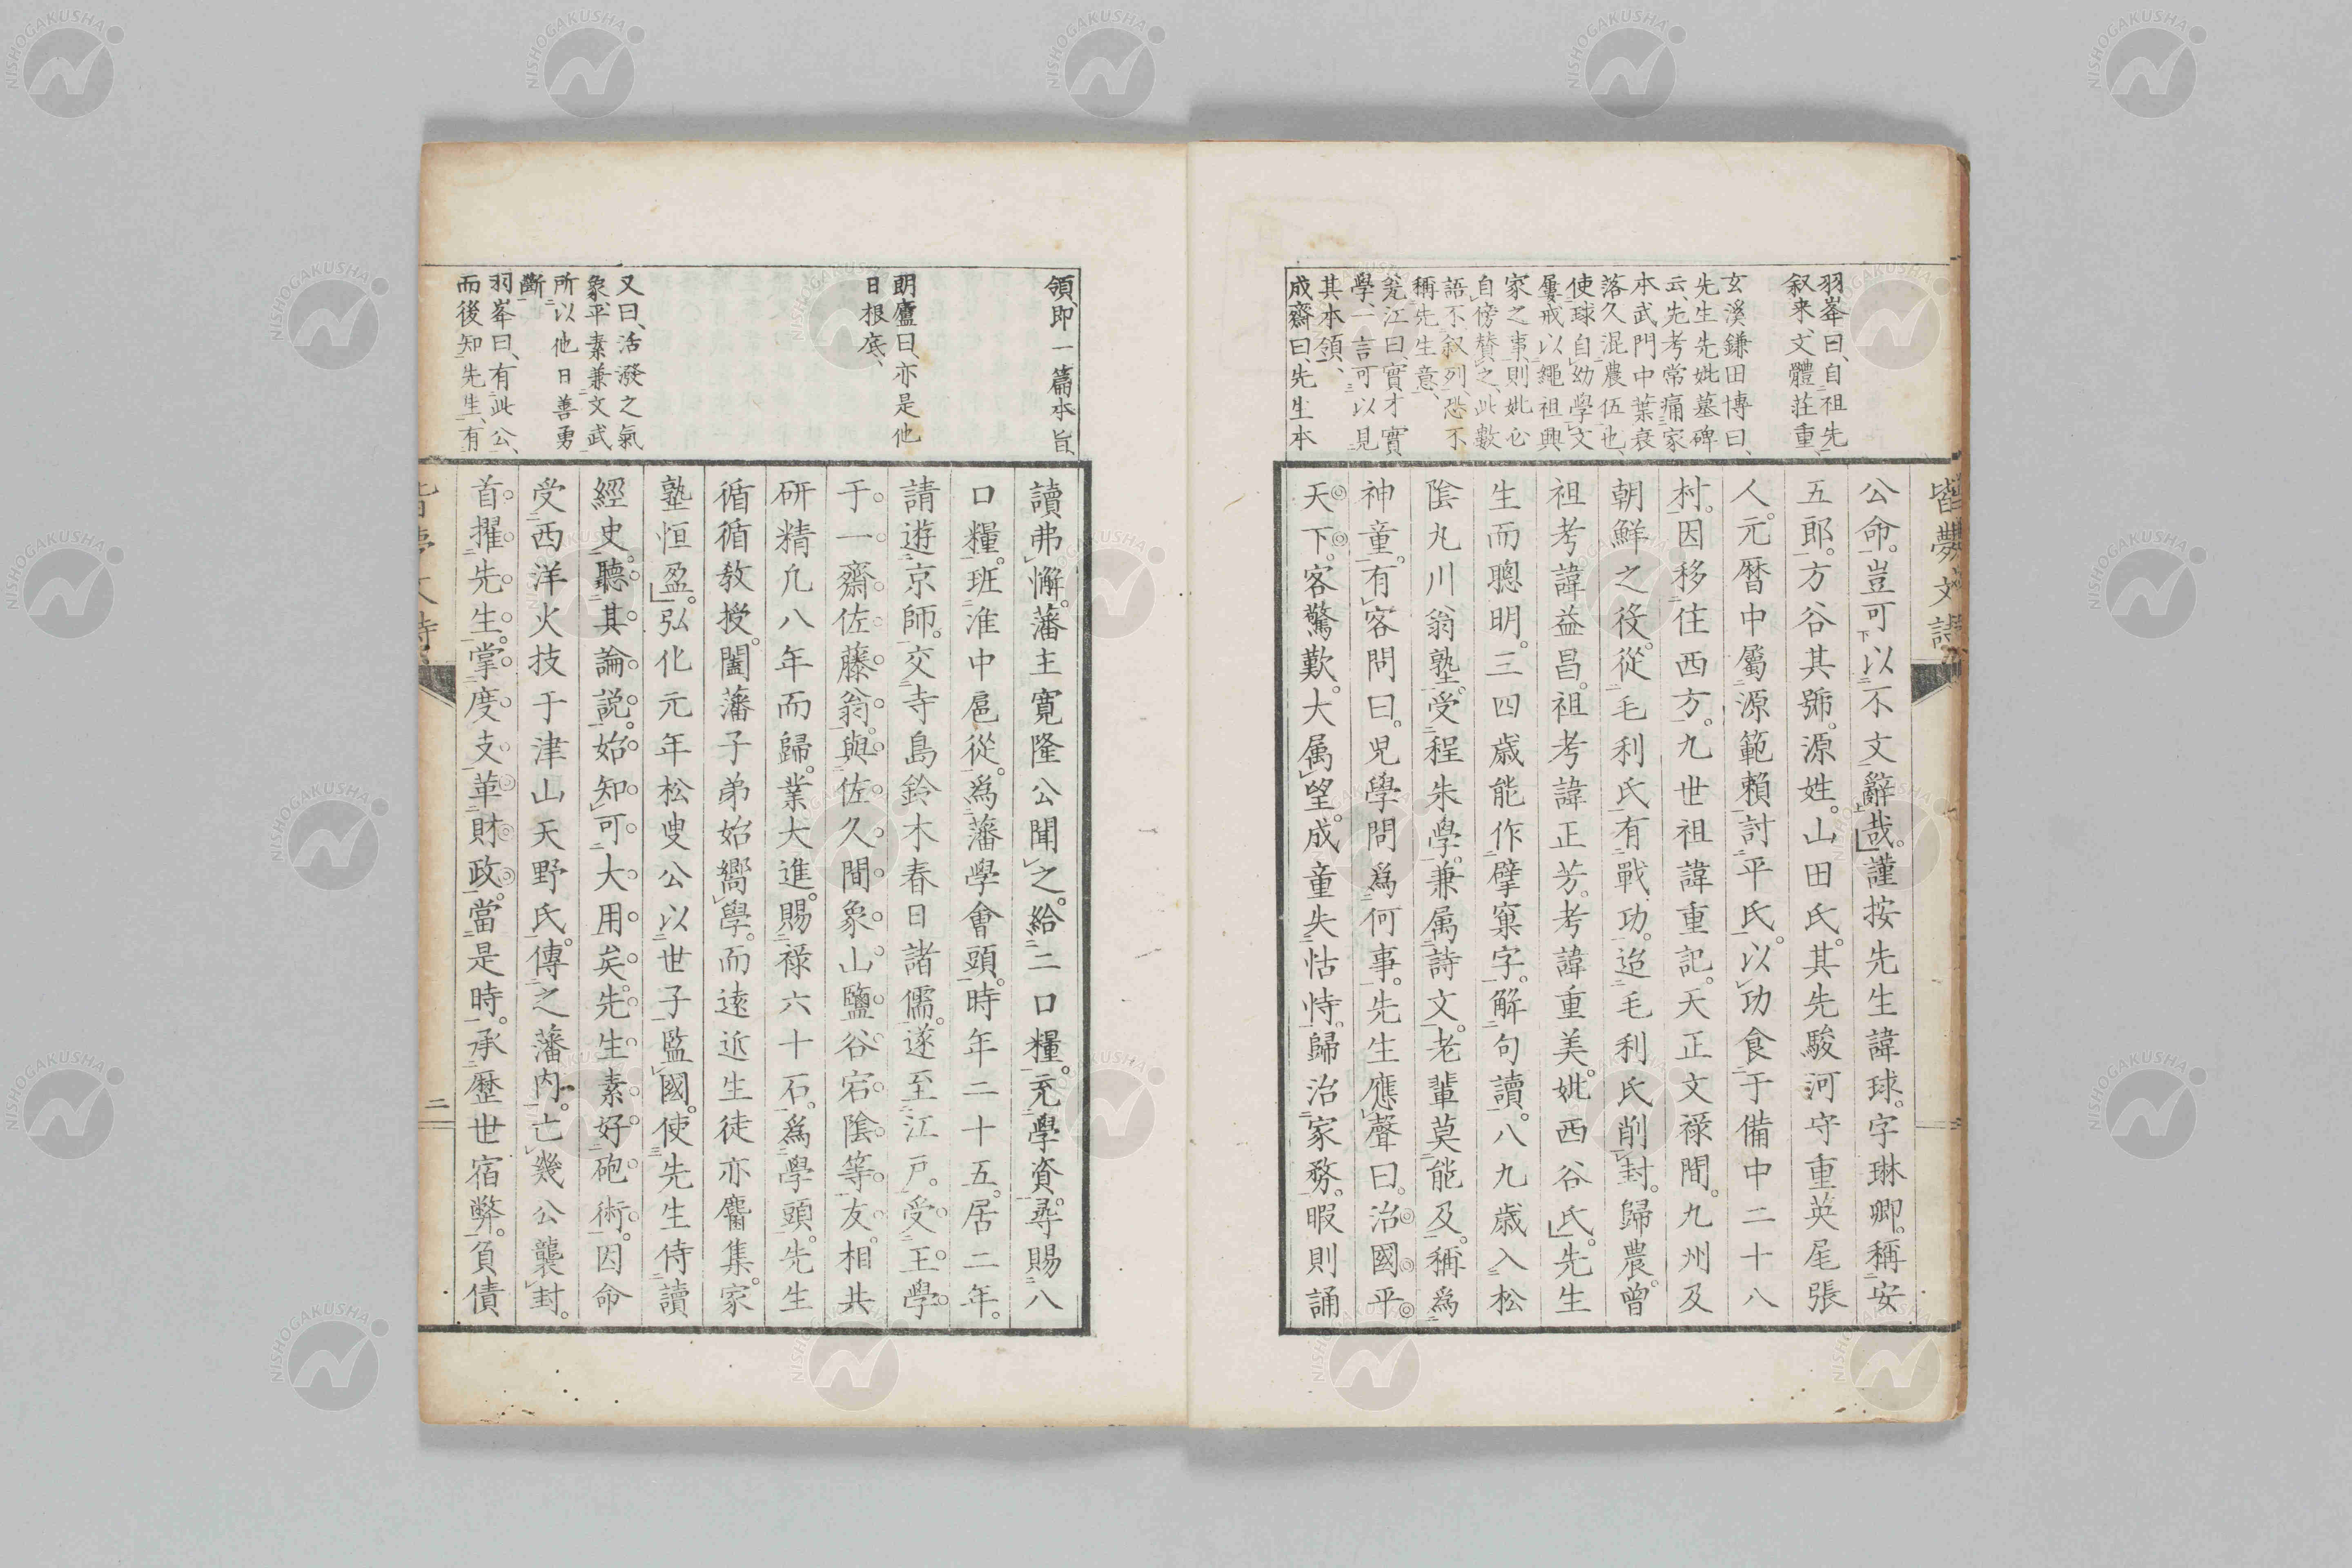 羽峯曰、自祖先
叙来、文體荘重、
玄溪鎌田博曰、
先生先妣墓碑
云、先考常痛家
本武門中葉衰
落久混農伍也、
使球自幼學文
屢戒以繩祖興
家之事、則妣必
自傍賛之、此數
語不叙列、恐不
稱先生意、
兖江曰、實才實
學、一言可以見
其本領、
成齋曰、先生本
公命。豈可以不文辭哉。謹按先生諱球。字琳卿。稱安
五郎。方谷其號。源姓。山田氏。其先駿河守重英尾張
人。元暦中屬源範賴討平氏。以功食于備中二十八
村。因移住西方。九世祖諱重記。天正文祿間。九州及
朝鮮之役。從毛利氏有戰功。迨毛利氏削封。歸農。曾
祖考諱益昌。祖考諱正芳。考諱重美。妣西谷氏。先生
生而聰明。三四歳能作擘窠字。解句讀。八九歳入松
陰丸川翁塾。受程朱學。兼属詩文。老輩莫能及。稱為
神童。有客問曰。兒學問為何事。先生應聲曰。治國平
天下。客驚歎。大属望。成童失怙恃。歸治家務。暇則誦
領、即一篇本旨、
朗廬曰、亦是他
日根底、
又曰、活潑之氣
象、平素兼文武
所以他日善勇
斷
羽峯曰、有此公、
而後知先生、有
讀弗懈。藩主寛隆公聞之。給二口糧。充學資。尋賜八
口糧。班准中扈從。為藩學會頭。時年二十五。居二年。
請遊京師。交寺島鈴木春日諸儒。遂至江戸。受王學
于一齋佐藤翁。與佐久間象山鹽谷宕陰等友。相共
研精凡八年而歸。業大進。賜祿六十石。為學頭。先生
循循教授。闔藩子弟始嚮學。而遠近生徒亦麕集。家
塾恒盈。弘化元年松叟公以世子監國。使先生侍讀
經史。聽其論説。始知可大用矣。先生素好砲術。因命
受西洋火技于津山天野氏。傳之藩内。亡幾公襲封。
首擢先生。掌度支革財政。當是時。承歴世宿弊。負債
二